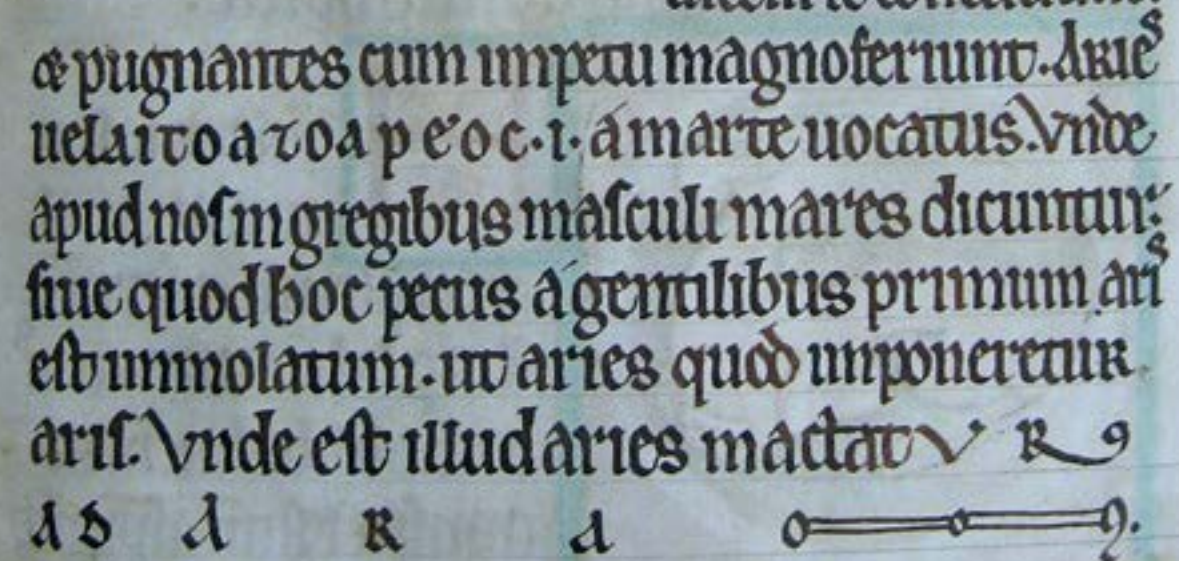 & pugnantes cum impetu magno feriunt. Aries
uel aito atoa peoc .i. a marte uocatus. Vnde
apud noſ in gregibus maſculi mares dicuntur:
ſiue quod hoc pecus a gentilibus primum aris
eſt immolatum. ut aries quod imponeretur
ariſ. Vnde eſt illud aries mactatV R
A D A R A